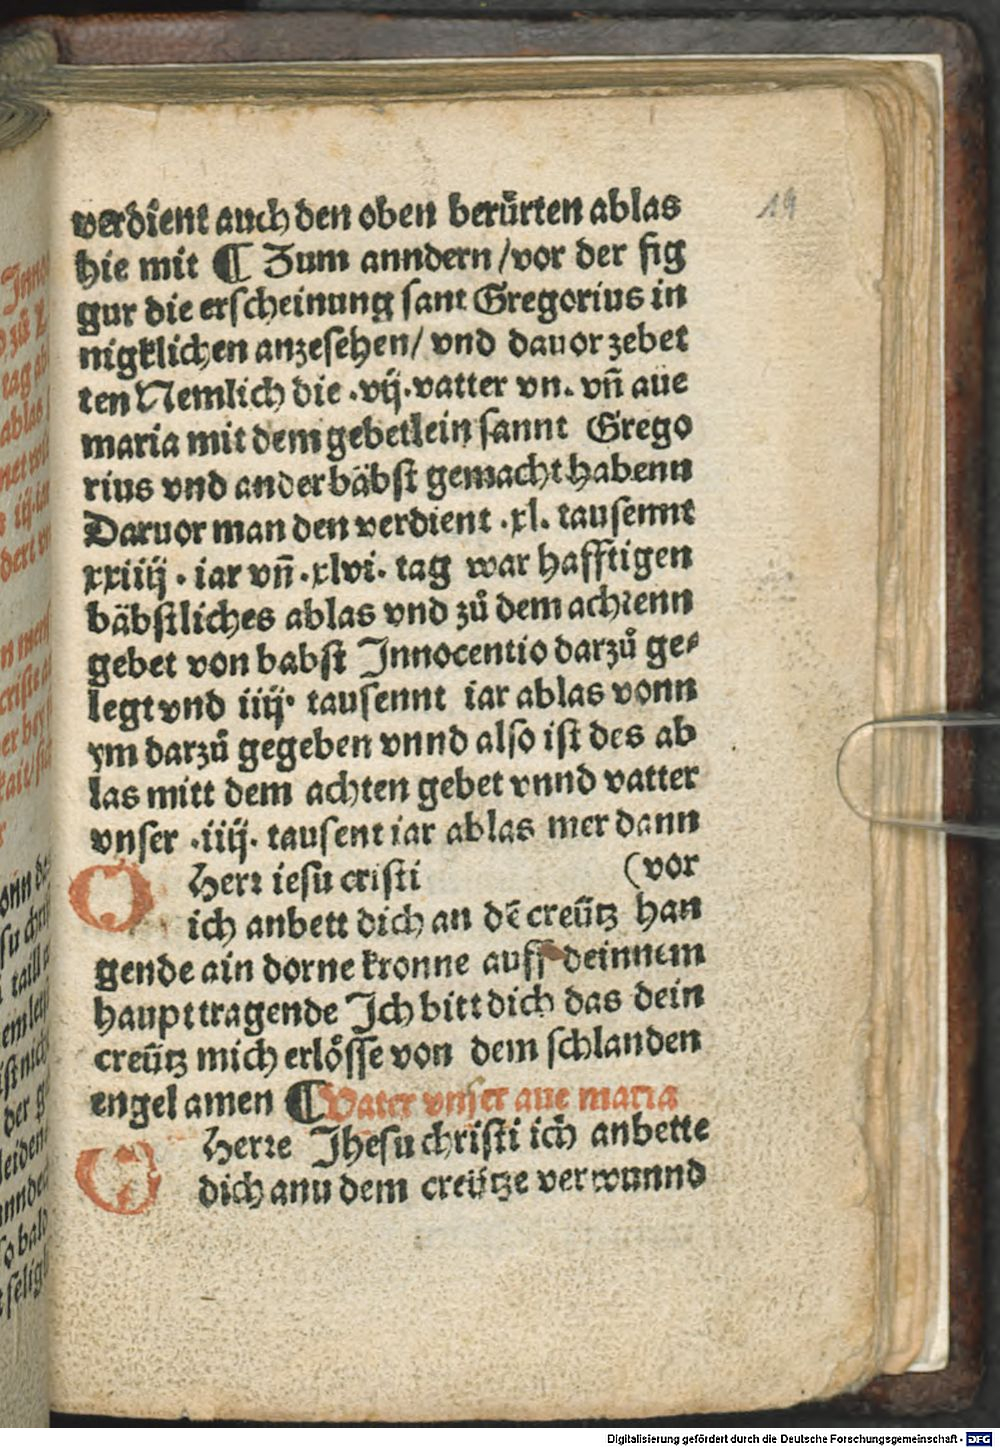 verdient auch den oben berürten ablas
hie mit ¶ Zum anndern / vor der fig
gur die erscheinung sant Gregorius in
nigklichen anzesehen / vnd dauor zebet
ten Nemlich die .vij. vatter vn. vn̄ aue
maria mit dem gebetlein sannt Grego
rius vnd ander bäbst gemacht habenn
Daruor man den verdient .xl. tausennt
xxiiij . iar vn̄ .xlvi. tag war hafftigen
bäbstliches ablas vnd zů dem achtenn
gebet von babst Innocentio darzů ge⸗
legt vnd iiij. tausennt iar ablas vonn
ym darzů gegeben vnnd also ist des ab
las mitt dem achten gebet vnnd vatter
vnser .iiij. tausent iar ablas mer dann
(vor
O Herr iesu cristi
ich anbett dich an dē creütz han
gende ain dorne kronne auff deinnem
haupt tragende Ich bitt dich das dein
creütz mich erlösse von dem schlanden
engel amen ¶ Vater vnser aue maria
O Herre Jhesu christi ich anbette
dich anu dem creütze verwunnd
19
Digitalisierung gefördert durch die Deutsche Forschungsgemeinschaft - DFG